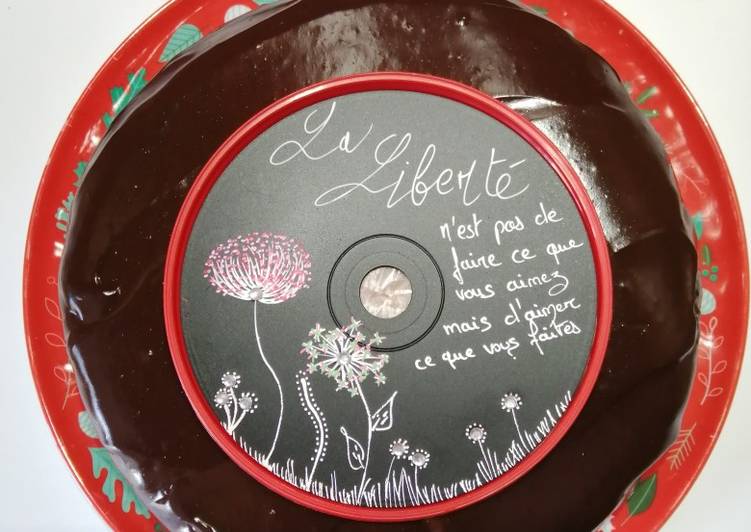 La Liberté
n'est pas de
faire ce que
vous aimez
mais d'aimer
ce que vous faites